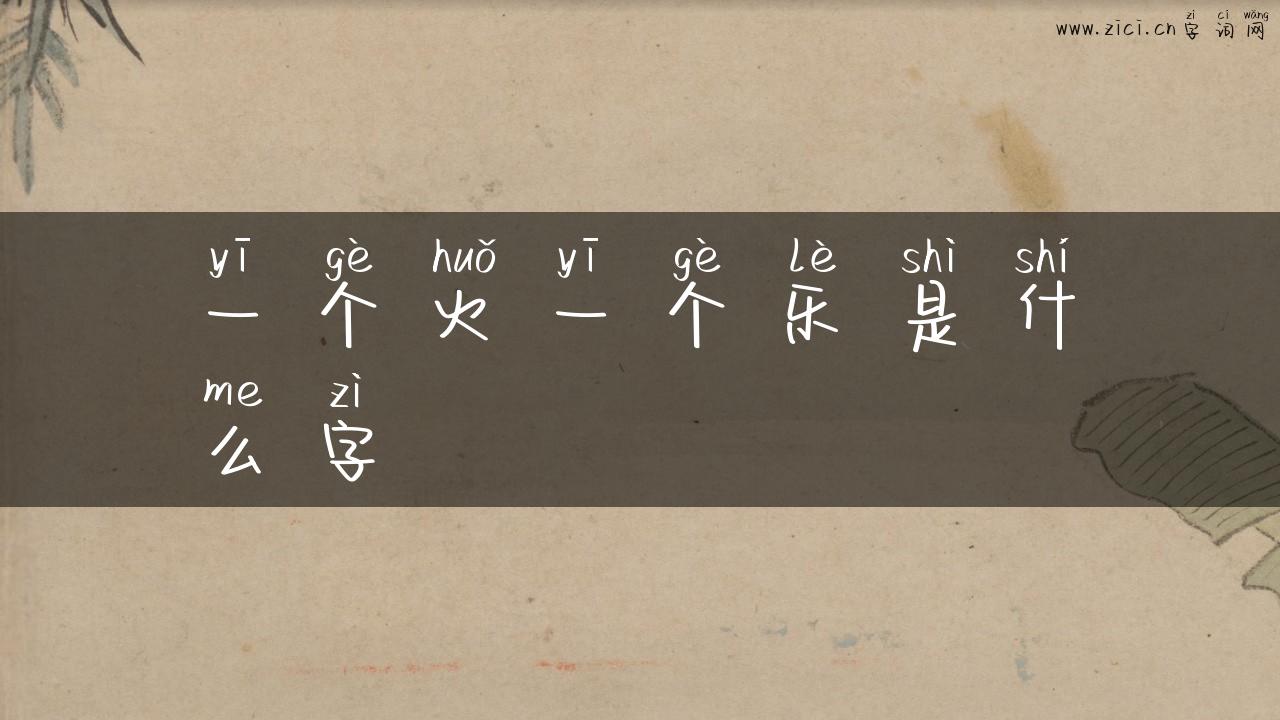 zì cí wǎng
www.zici.cn 字词网
yī gè huǒ yī gè lè shì shí
一个火一个乐是什
me zì
么字